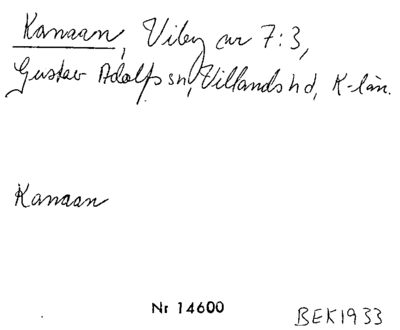 Kanaan, Viby av 7:3,
Gustav Adolfs sn, Villands hd, K-län.
Kanaan
Nr 14600
BEK1933